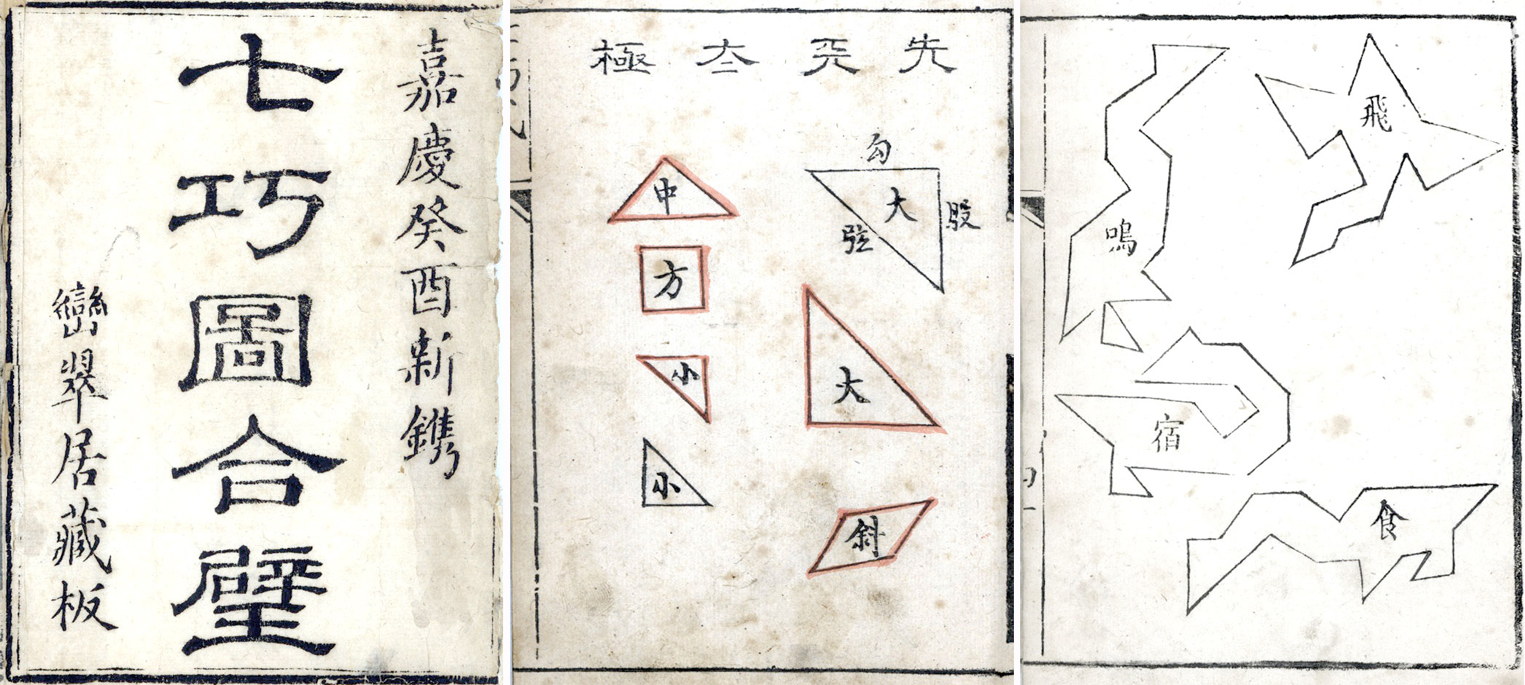 嘉慶癸酉新鐫
七巧圖合璧
巒翠居藏板
先兲夳極
勾
大
股
弦
大
斜
中
方
小
小
飛
鳴
宿
食